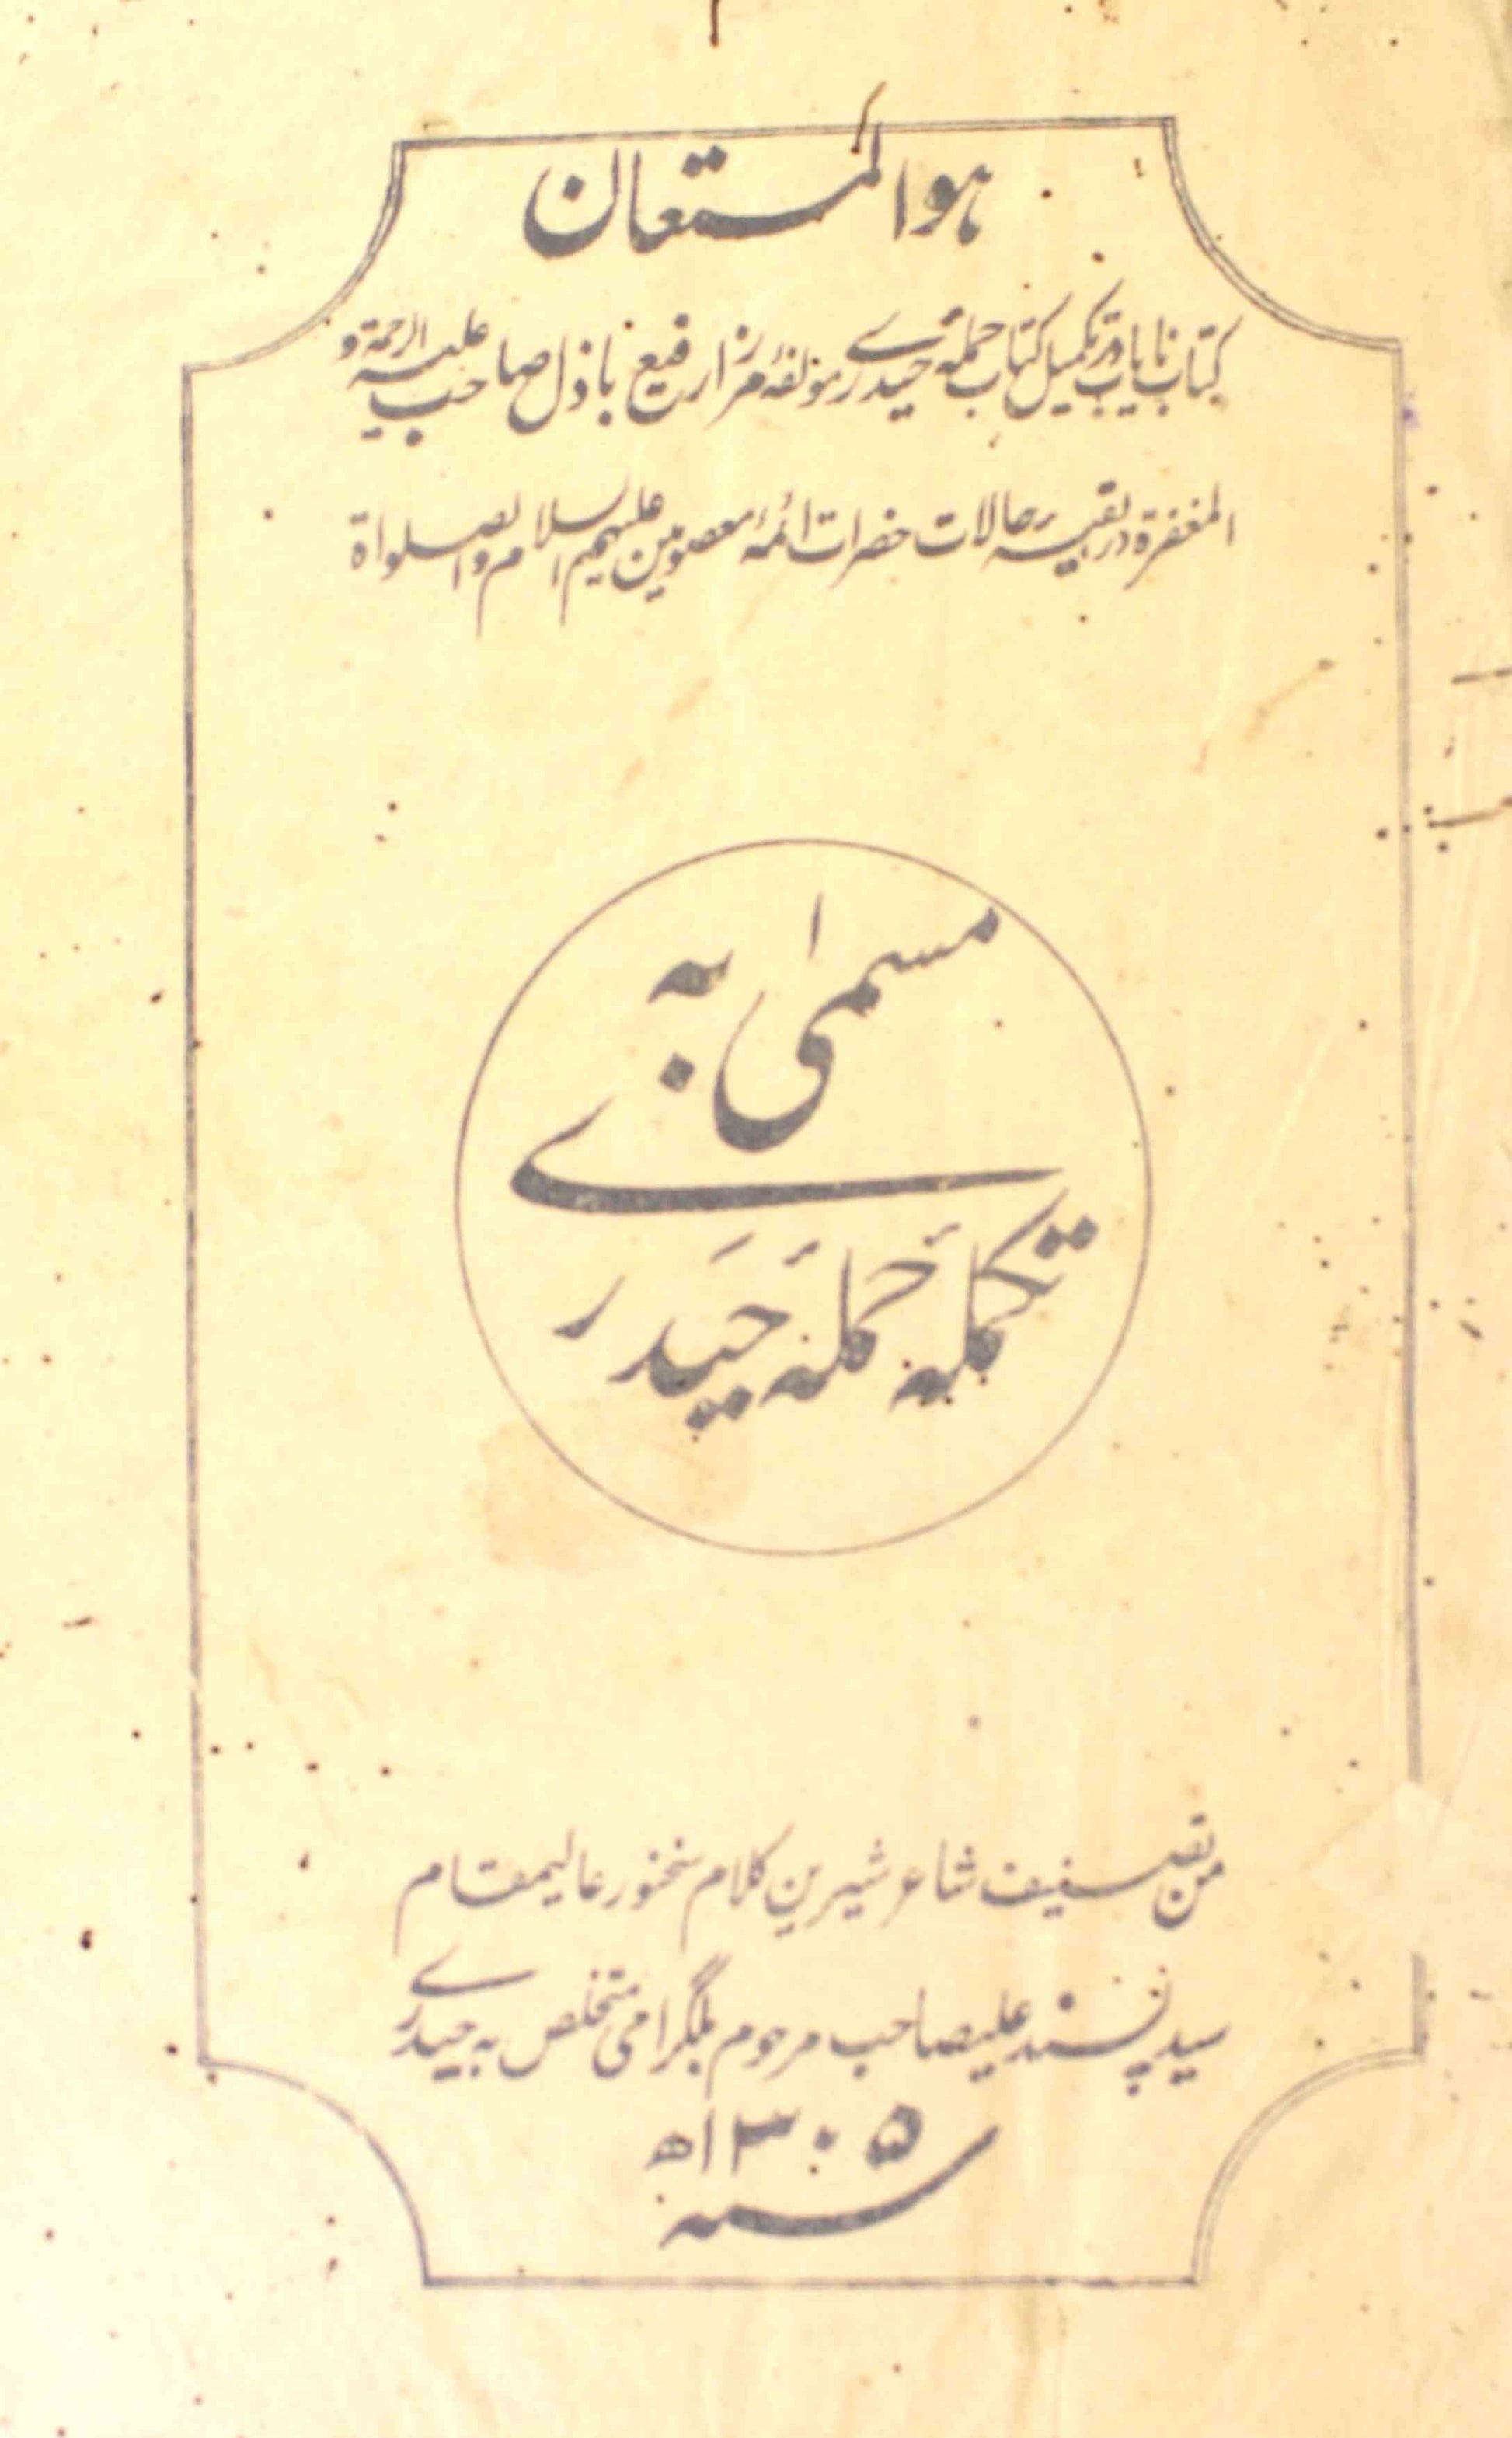 ہو المستعان
کتاب نایاب در تکمیل کتاب حملۂ حیدرے مؤلفۂ مرزا رفیع باذل صاحب علیہ الرحمۃ و
المغفرۃ در بقیہ حالات حضرات ائمۂ معصومین علیہم السلام والصلواۃ
مسمیٰ بہ
تکملۂ حملۂ حیدرے
من تصنیف شاعر شیرین کلام سخنور عالیمقام
سید پسند علیصاحب مرحوم بلگرامی متخلص بہ حیدرے
سنہ ۱۳۰۵ھ